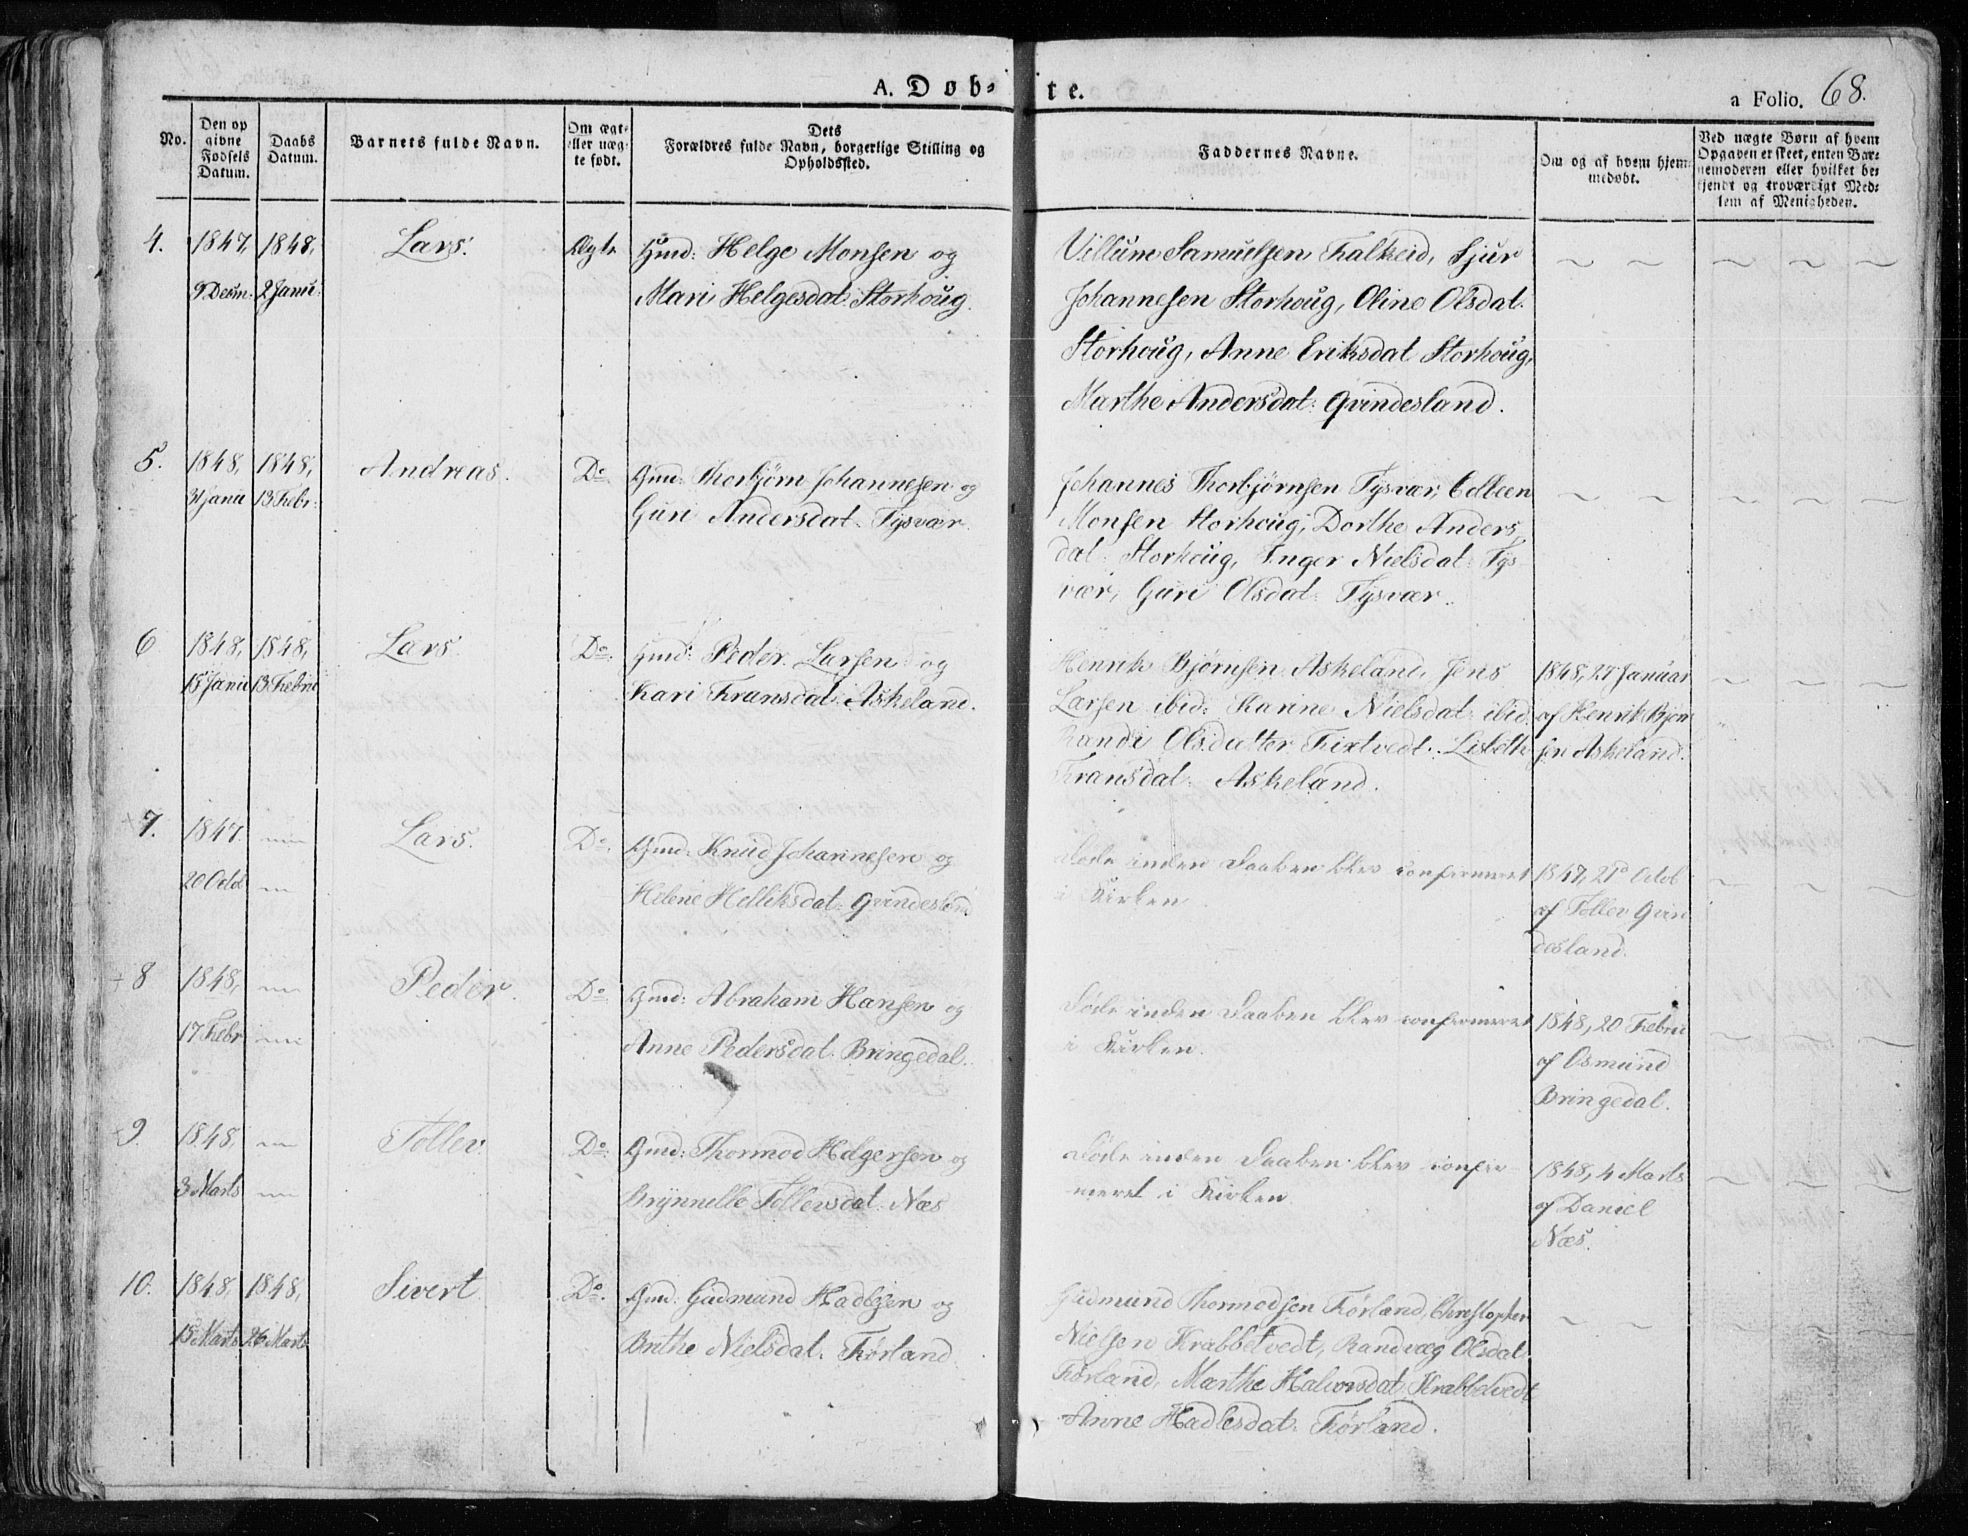 A. Døb- ste.
a Folio. 68.
No.
Den opgivne Fødsels Datum.
Daabs Datum.
Barnets fulde Navn.
Om ægte eller uægte født.
Dets Forældres fulde Navn, borgerlige Stilling og Opholdssted.
Faddernes Navne.
Om og af hvem hjemmedøbt.
Ved uægte Børn af hvem Opgaven er skeet, enten Barnemoderen eller hvilket bekjendt og troværdigt Medlem af Menigheden.
4. 1847, 1848, Lars. Ægte Gmd: Helge Monsen og
9 Decm: 2 Janu: Mari Helgesdat: Storhoug.
Villum Samuelsen Falkeid, Sjur
Johannesen Storhoug, Oline Olsdat:
Storhoug, Anne Eriksdat Storhoug,
Marthe Andersdat: Qvindesland.
5. 1848, 1848, Andreas. Do Gmd: Thorbjørn Johannesen og
31 Janu 13 Febr: Guri Andersdat: Tysvær.
Johannes Thorbjørnsen Tysvær, Edbeen
Monsen Storhoug, Dorthe Anders
dat: Storhoug, Inger Nielsdat: Tys
vær, Guri Olsdat: Tysvær.
6 1848, 1848, Lars. Do Gmd: Peder Larsen og
15 Janu 13 Febru Kari Fransdat: Askeland.
Henrik Bjørnsen Askeland, Jens
Larsen ibid: Karine Nielsdat: ibid.
Randi Olsdatter Fixtvedt. Lisbeth
Fransdat: Askeland.
1848, 27 Januar
af Henrik Bjørn
sen Askeland.
7. 1847. Lars. Do. Gmd: Knud Johannesen og
20 Octob Helene Helliksdat: Qvindesland
Døde inden Daaben blev confirmeret
i Kirken
1847, 21d Octob
af Tollev Qvin
desland.
8 1848, Peder. Do Gmd: Abraham Hansen og
17 Febr Anne Pedersdat: Bringedal.
Døde inden Daaben blev confirmeret
i Kirken.
1848, 20 Febru
af Osmund
Bringedal.
9. 1848, Tollev. Do. Gmd: Thormod Helgersen og
3 Marts Brynnelle Tollevsdat: Næs
Døde inden Daaben blev confir-
meret i Kirken.
1848, 4 Marts
af Daniel
Næs.
10. 1848, 1848, Sivert. Do. Gmd: Gudmund Hadlesen og
15 Marts 26 Marts Brithe Nielsdat: Førland
Gudmund Thormodsen Førland, Christopher
Nielsen Krabbetvedt, Randvæg Olsdat
Førland, Marthe Halvorsdat: Krabbetvedt
Anne Hadlesdat: Førland.